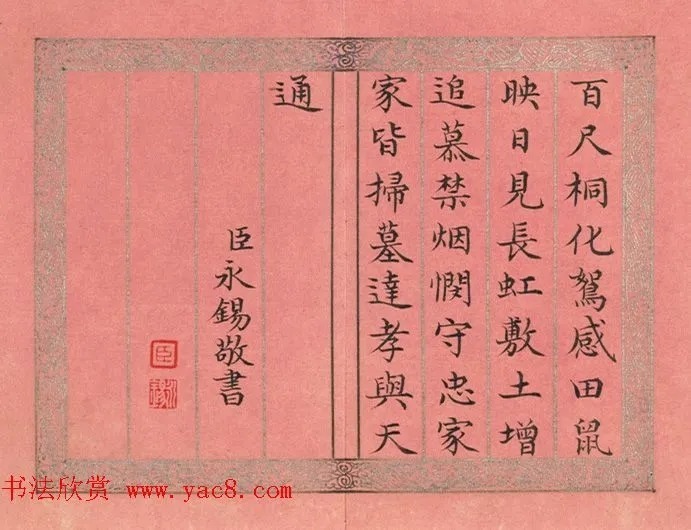 百尺桐化鴽感田鼠
映日見長虹敷土增
追慕禁烟憫守忠家
家皆掃墓達孝與天
通
臣永錫敬書
臣
书法欣赏 www.yac8.com